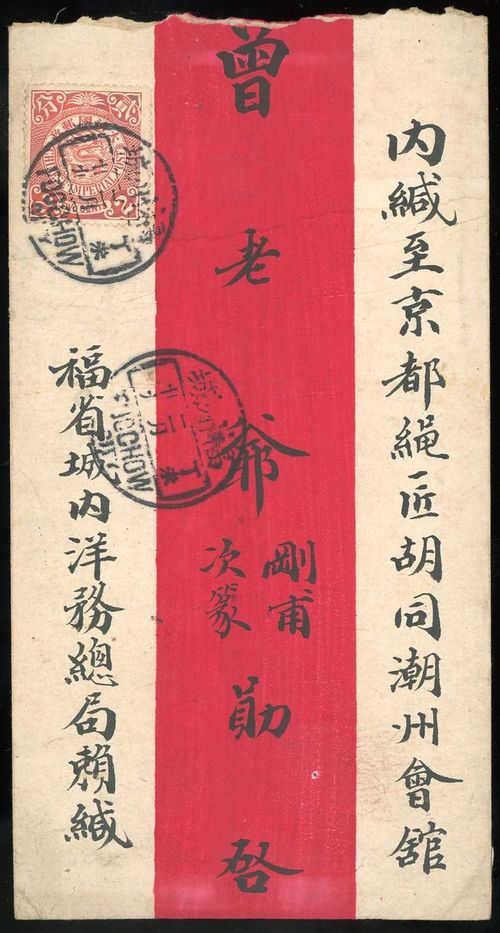 內緘至京都繩匠胡同潮州會舘
曾老爺
剛甫
次篆
勛啓
福省城內洋務總局賴緘
貳分
IMPERIAL POST
FOOCHOW
FOOCHOW